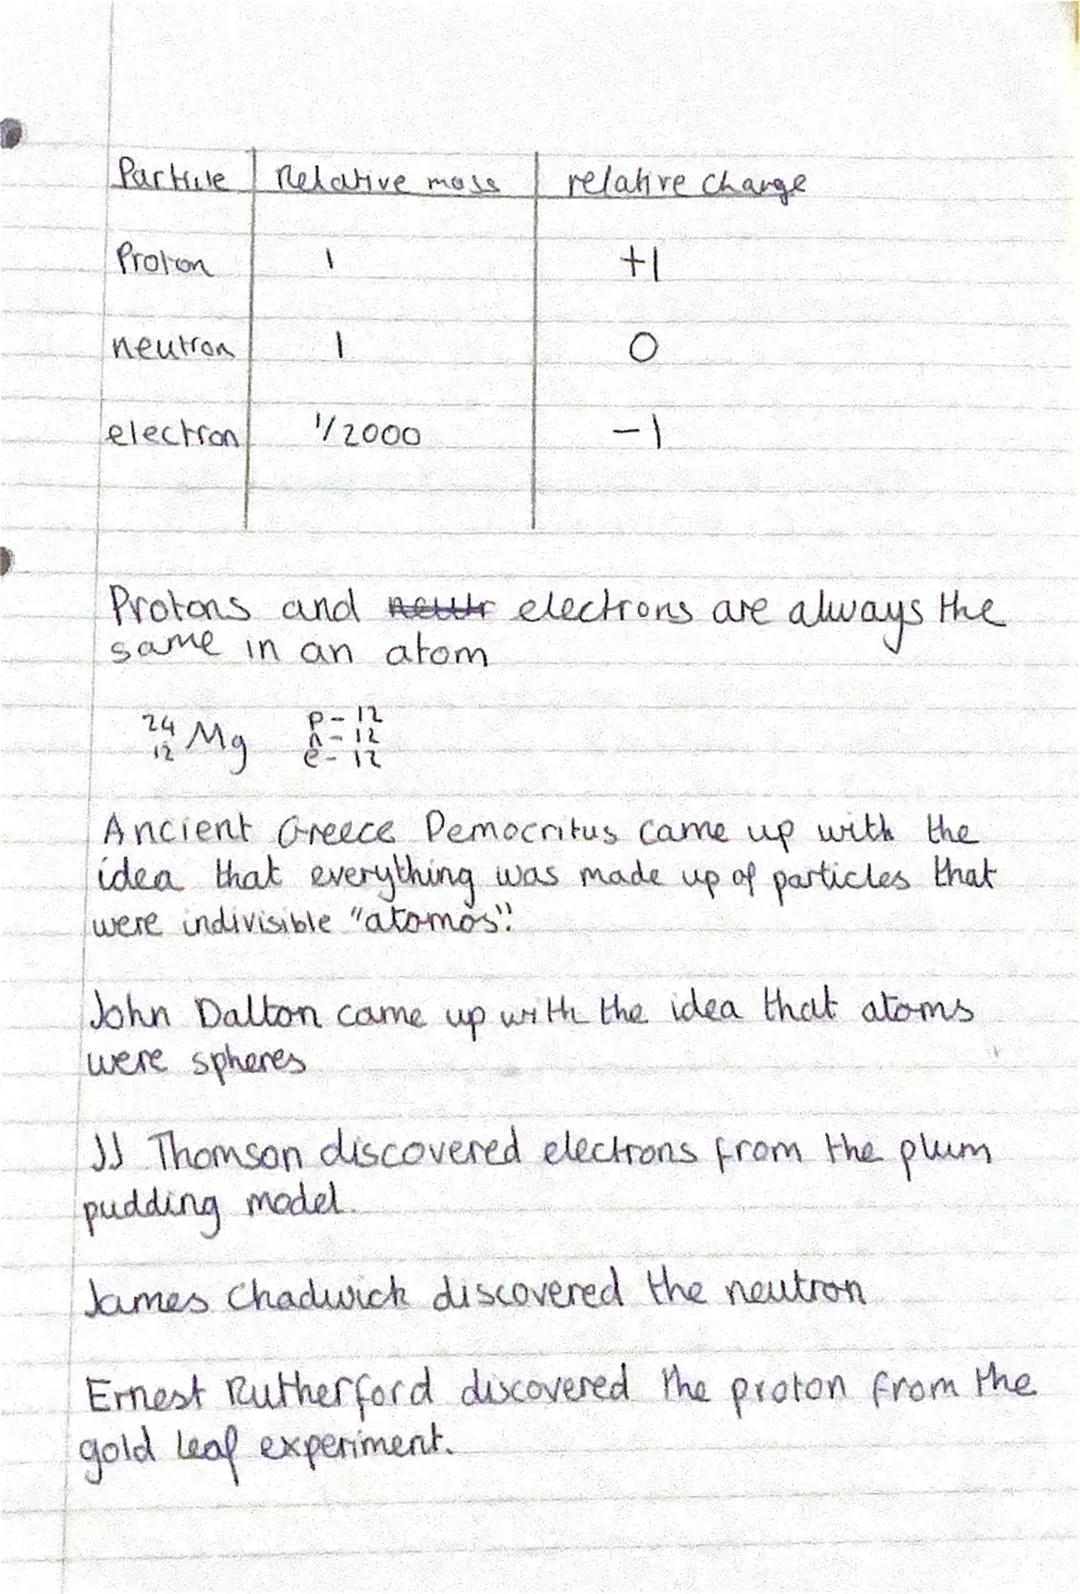 Particle Relative mass relative charge
Proton 1 +1
neutron 1 0
electron 1/2000 -1
Protons and neutr electrons are always the
same in an atom
24 12 Mg p-12 n-12 e-12
Ancient Greece Democritus came up with the
idea that everything was made up of particles that
were indivisible "atomos".
John Dalton came up with the idea that atoms
were spheres
JJ Thomson discovered electrons from the plum
pudding model.
James Chadwick discovered the neutron
Ernest Rutherford discovered the proton from the
gold leaf experiment.